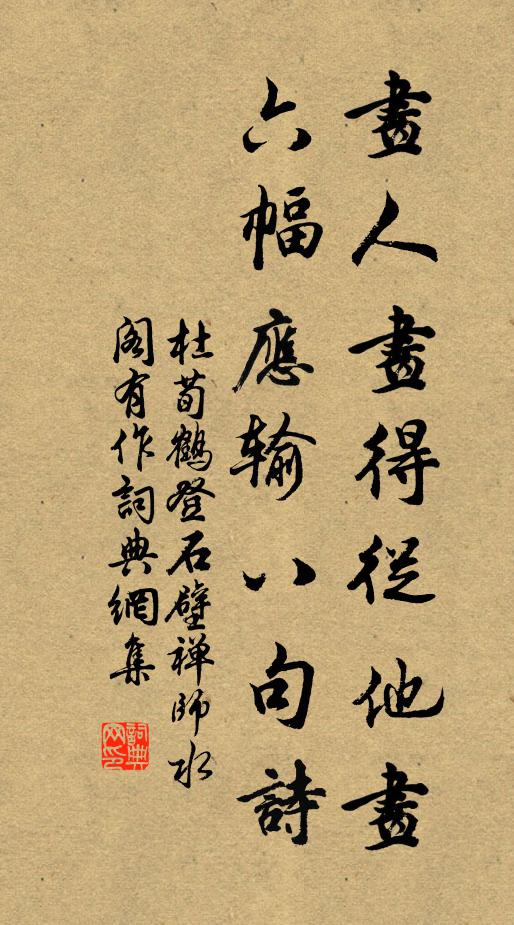 畫人畫得從他畫
六幅應输八句詩
杜荀鶴登石壁禅師水
阁有作詞典網集
詞典网印